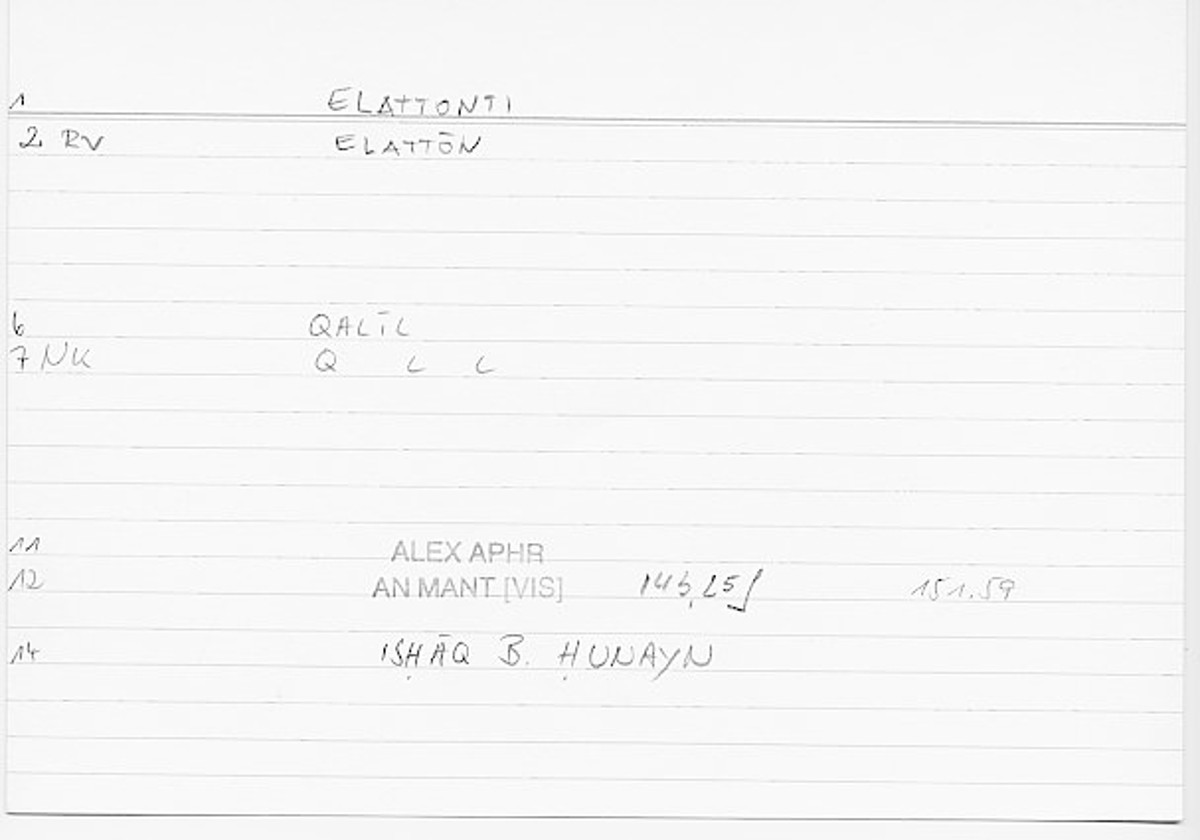 1 ELATTONTI
2 RV ELATTŌN
6 QALĪL
7 NK Q L L
11 ALEX APHR
12 AN MANT [VIS] 143,25f 151.59
14 ISḤĀQ B. ḤUNAYN